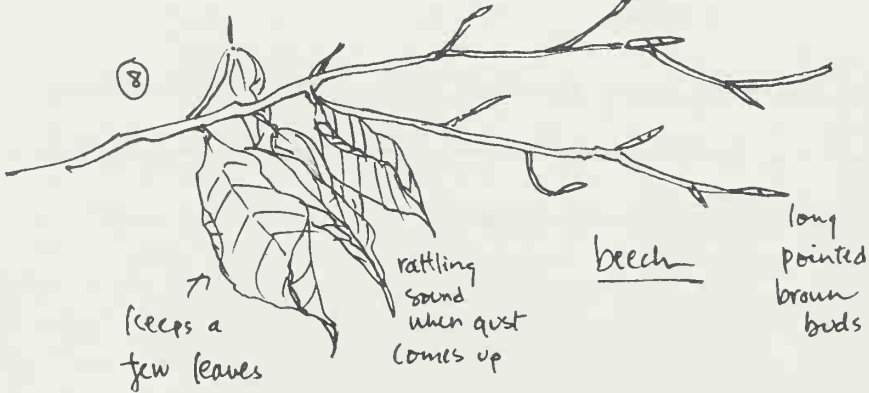 8
keeps a
few leaves
rattling
sound
when gust
comes up
beech
long
pointed
brown
buds